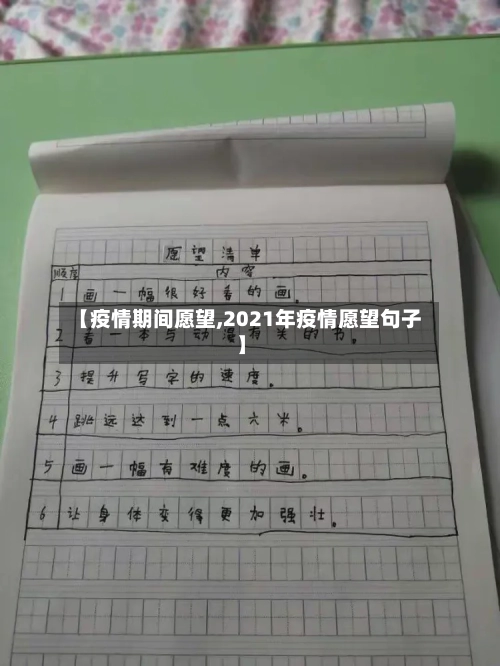 愿望清单
顺序 内容
1 画一幅很好看的画。
【疫情期间愿望,2021年疫情愿望句子
】
2 看一本与动漫有关的书。
3 提升写字的速度。
4 跳远达到一点六米。
5 画一幅有难度的画。
6 让身体变得更加强壮。